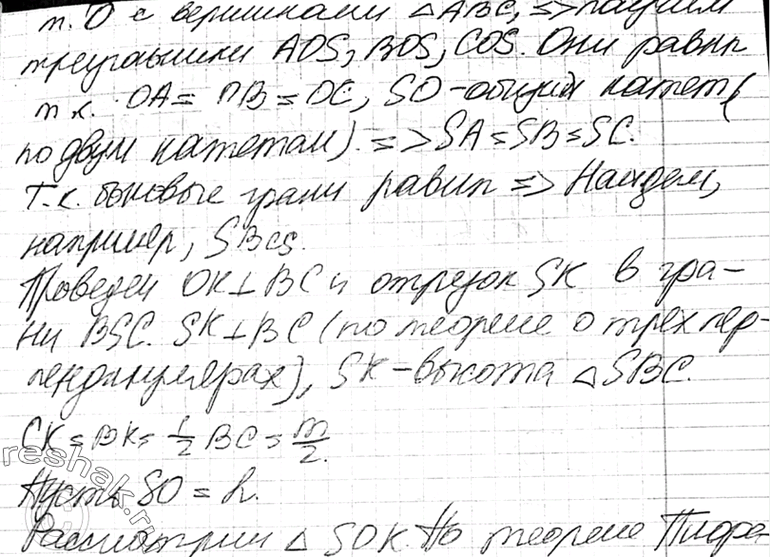 т. О с вершинами △ABC, => получим
треугольники AOS, BOS, COS. Они равны
т.к. OA = OB = OC, SO - общий катет (
по двум катетам). => SA = SB = SC.
Т.к. боковые грани равны => Найдем,
например, SBCS.
Проведем OK ⊥ BC и отрезок SK в гра-
ни BSC. SK ⊥ BC (по теореме о трех пер-
пендикулярах), SK - высота △SBC.
CK = BK = 1/2 BC = m/2.
Пусть SO = h.
Рассмотрим △ SOK. По теореме Пифа-
reshak.ru